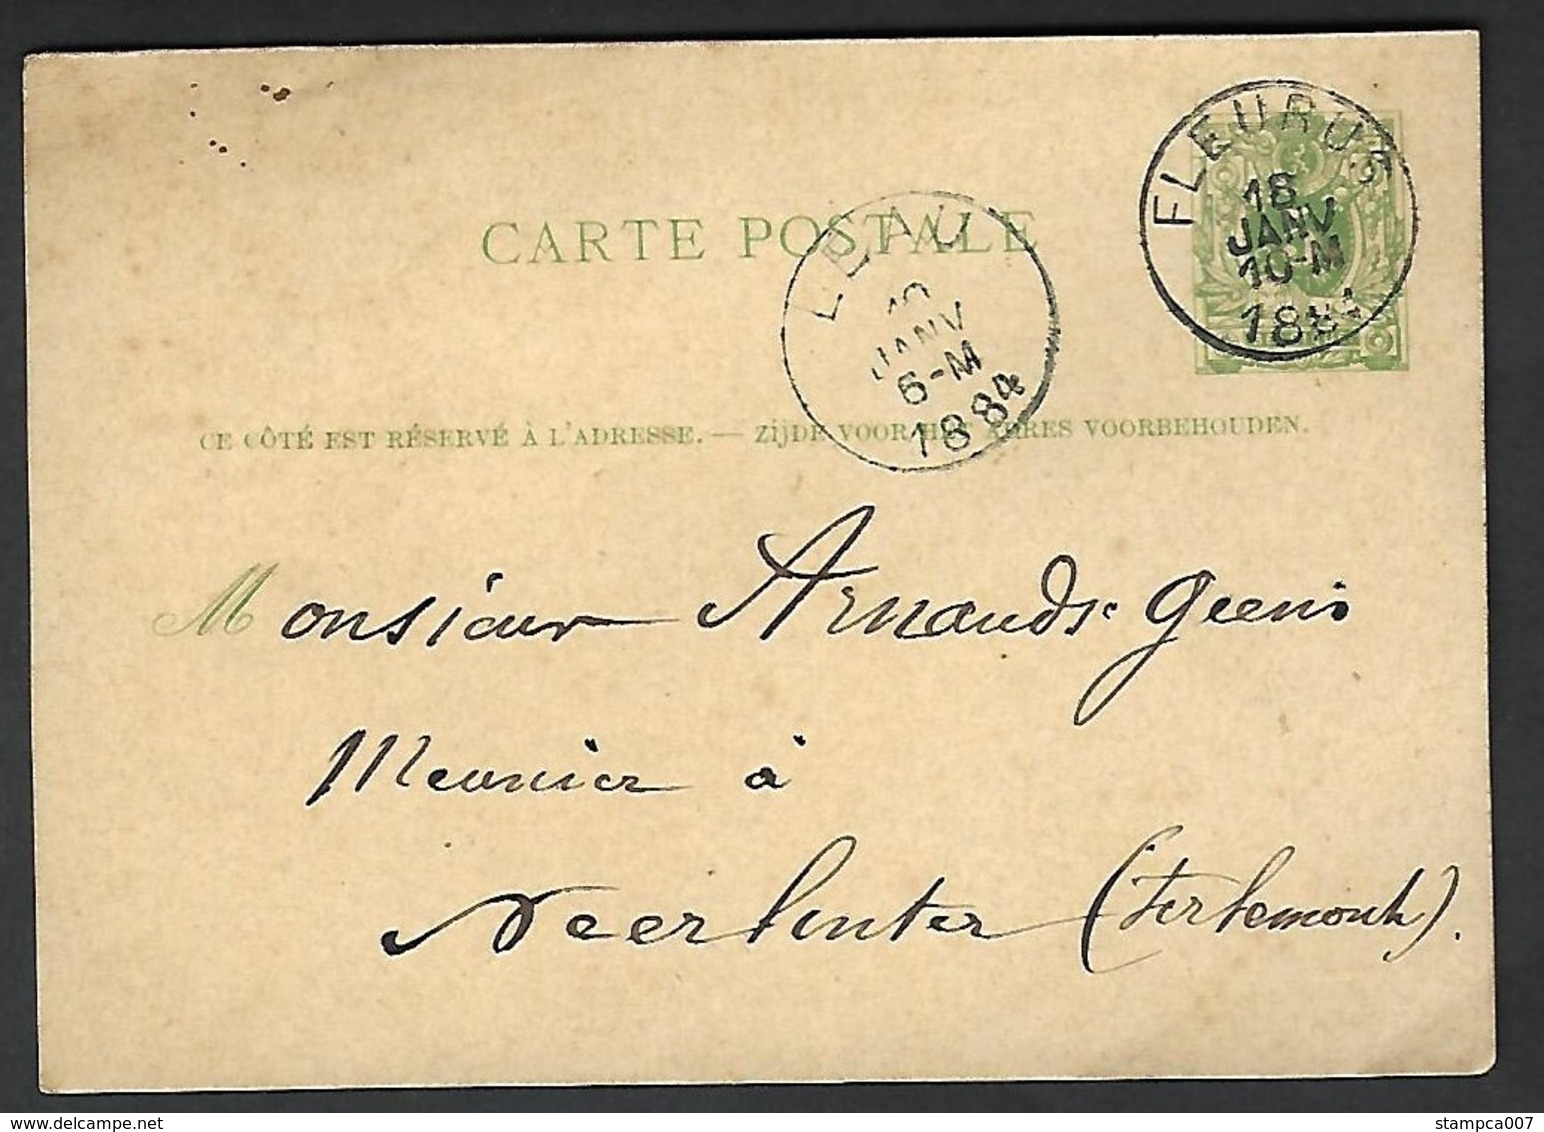 CARTE POSTALE
FLEURUS
18
JANV
10-M
1884
LEAU
19
JANV
6-M
1884
CE CÔTÉ EST RÉSERVÉ À L'ADRESSE. — ZIJDE VOOR HET ADRES VOORBEHOUDEN.
Monsieur Armands Geens
Meunier à
Neerlinter (Tirlemont).
stampca007